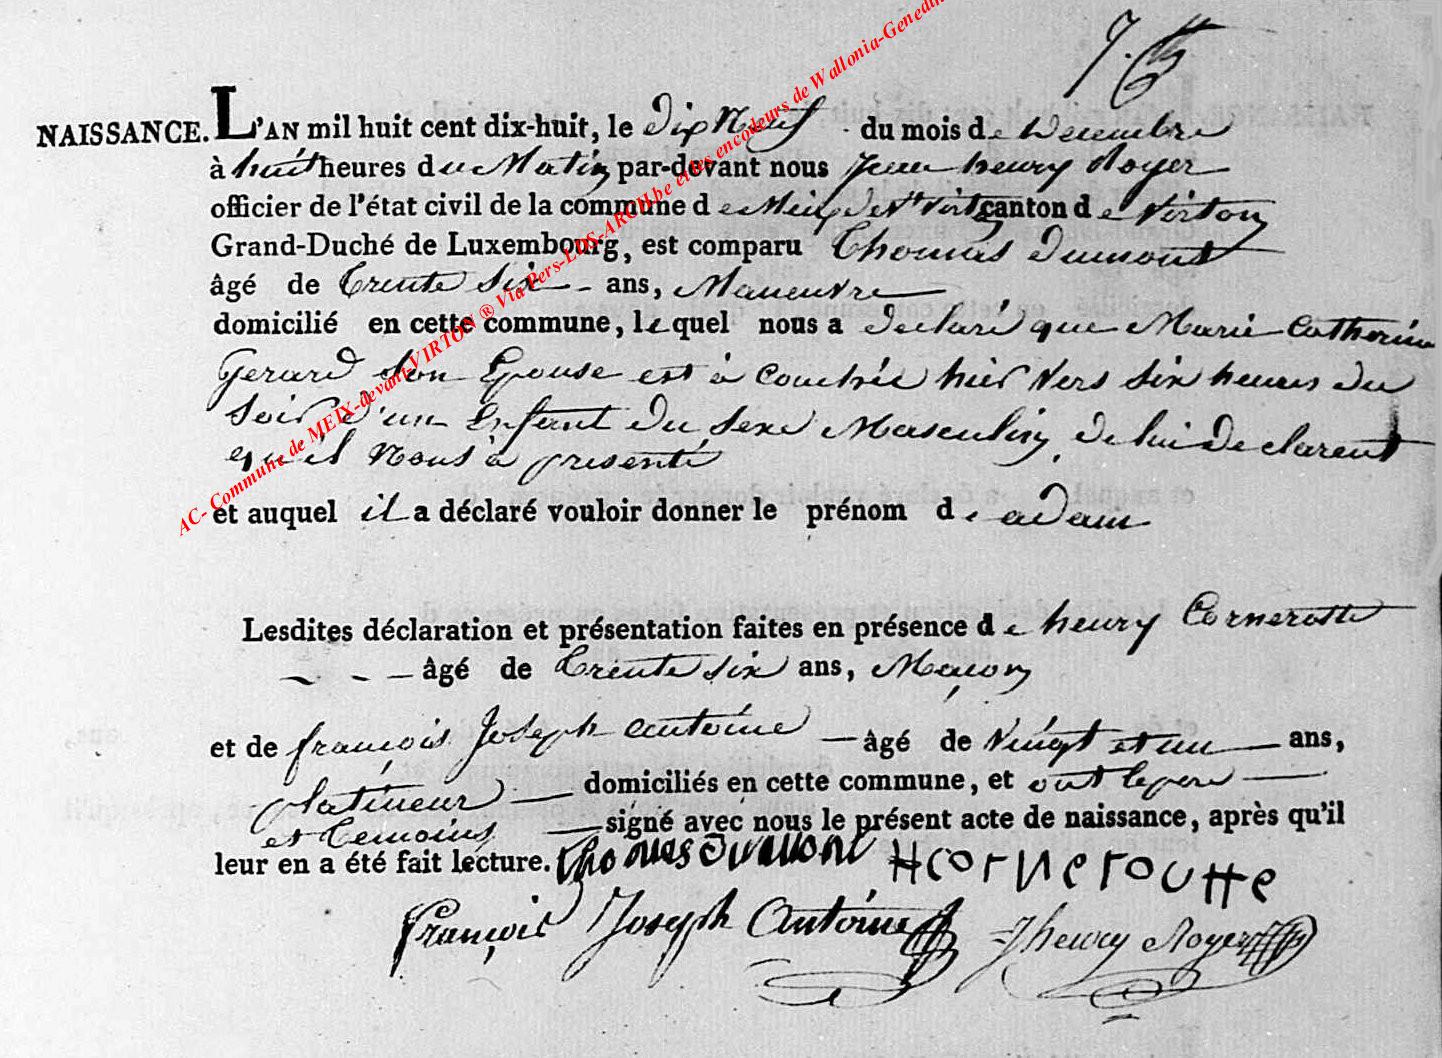 NAISSANCE. L'AN mil huit cent dix-huit, le dix Neuf du mois de Decembre
à huit heures du Matin par-devant nous Jean henry Royer
officier de l'état civil de la commune de Meix dvt Virton canton de Virton
Grand-Duché de Luxembourg, est comparu Thomas Dumont
âgé de Trente Six ans, Maneuvre
domicilié en cette commune, lequel nous a declaré que Marie Catherine
Gerard Son Epouse est à couchée hier vers six heures du
Soir d'un Enfant du sexe Masculin, de lui declarent
qu'il nous à presenté
et auquel il a déclaré vouloir donner le prénom de adam
Lesdites déclaration et présentation faites en présence de henry Cornerotte
âgé de Trente six ans, Maçon
et de françois Joseph antoine âgé de vingt et un ans,
platineur domiciliés en cette commune, et ont le pere
et temoins signé avec nous le présent acte de naissance, après qu'il
leur en a été fait lecture. Thomas Dumont Hcorneroutte
françois Joseph Antoine Jhenry Royer
AC- Commune de MEIX-devant-VIRTON ® Via Pers-LDS-ARCH.be et les encodeurs de Wallonia-Genedin